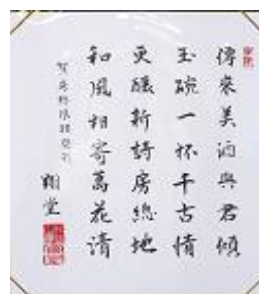 傳來美酒與君傾
玉碗一杯千古情
更釀新詩房總地
和風相寄萬花清
翔堂